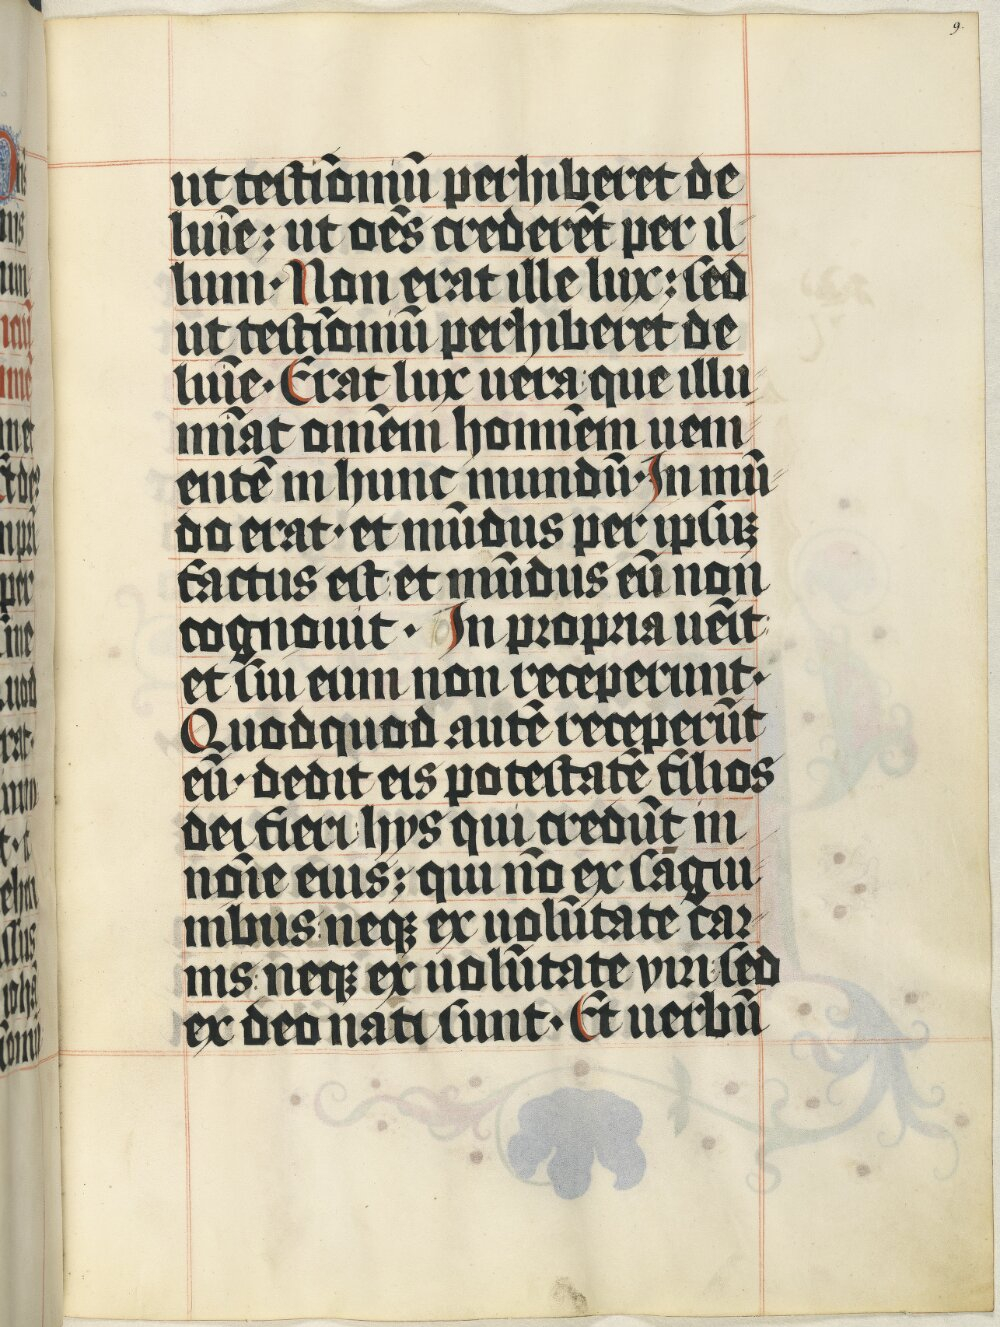 9.
ut testiōniū perhiberet de
luīe: ut oēs crederēt per il
lum· Non erat ille lux: sed
ut testiōniū perhiberet de
luīe· Erat lux uera que illu
mīat omēm homīem ueni
entē in hunc mundū· In mū
do erat· et mūdus per ipsuꝫ
factus est et mūdus eū non
cognouit· In propria uēit
et sui eum non receperunt·
Quodquod autē receperūt
eū· dedit eis potestatē filios
dei fieri hys qui credūt in
noīe eius: qui nō ex sāgui
nibus neqꝫ ex uolūtate car
nis neqꝫ ex uolūtate viri sed
ex deo nati sunt· Et uerbū